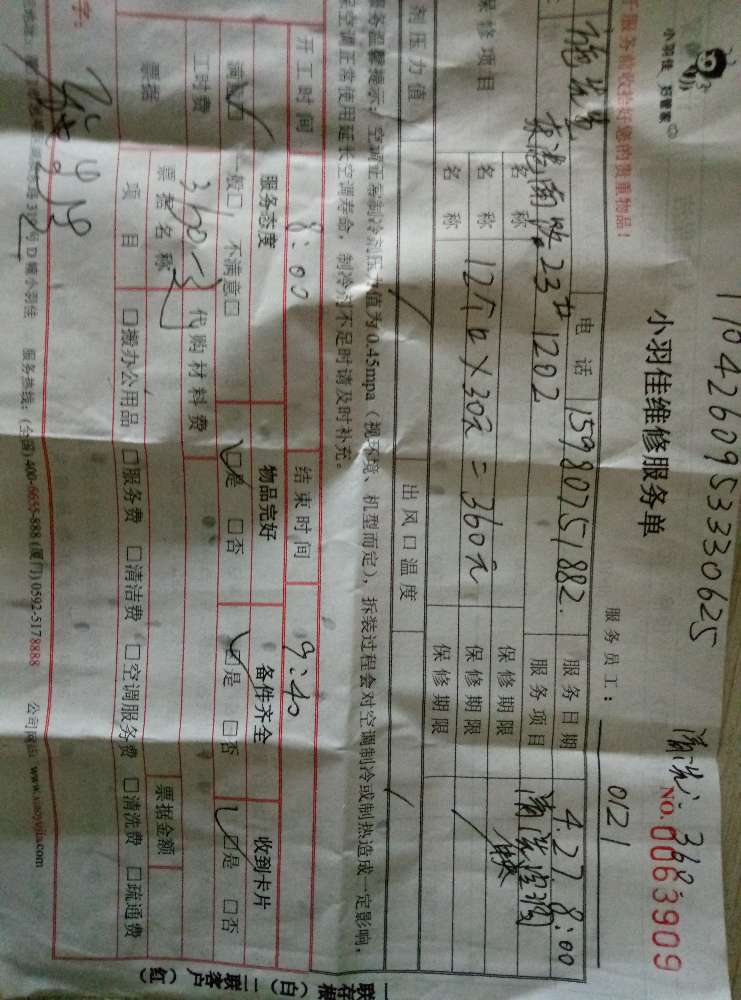 1104260953330625
清洗:360元
小羽佳 好管家
小羽佳维修服务单
NO.0063909
服务员工: 0121
于服务前收拾好您的贵重物品!
电话 15980751882. 服务日期 4.27 8:00
东港南路 23# 1202 服务项目 清洗空调
保修项目 名称 保修期限
名称 12个口×30元=360元 保修期限
名称 保修期限
剂压力值 出风口温度
服务温馨提示:空调正常制冷剂压力值为0.45mpa(视环境、机型而定),拆装过程会对空调制冷或制热造成一定影响,
保空调正常使用延长空调寿命,制冷剂不足时请及时补充。
开工时间 8:00 结束时间 9:40
服务态度 物品完好 备件齐全 收到卡片
满意□ 一般□ 不满意□ □是 □否 □是 □否 □是 □否
工时费 360元 代购材料费
票据 票据名称 票据金额
项目 □搬办公用品 □服务费 □清洁费 □空调服务费 □清洗费 □疏通费
字:
319号D幢小羽佳 服务热线:(全国)400-6655-888 (厦门)0592-5178888 公司网站:www.xiaoyujia.com
一联存根(白) 二联客户(红)